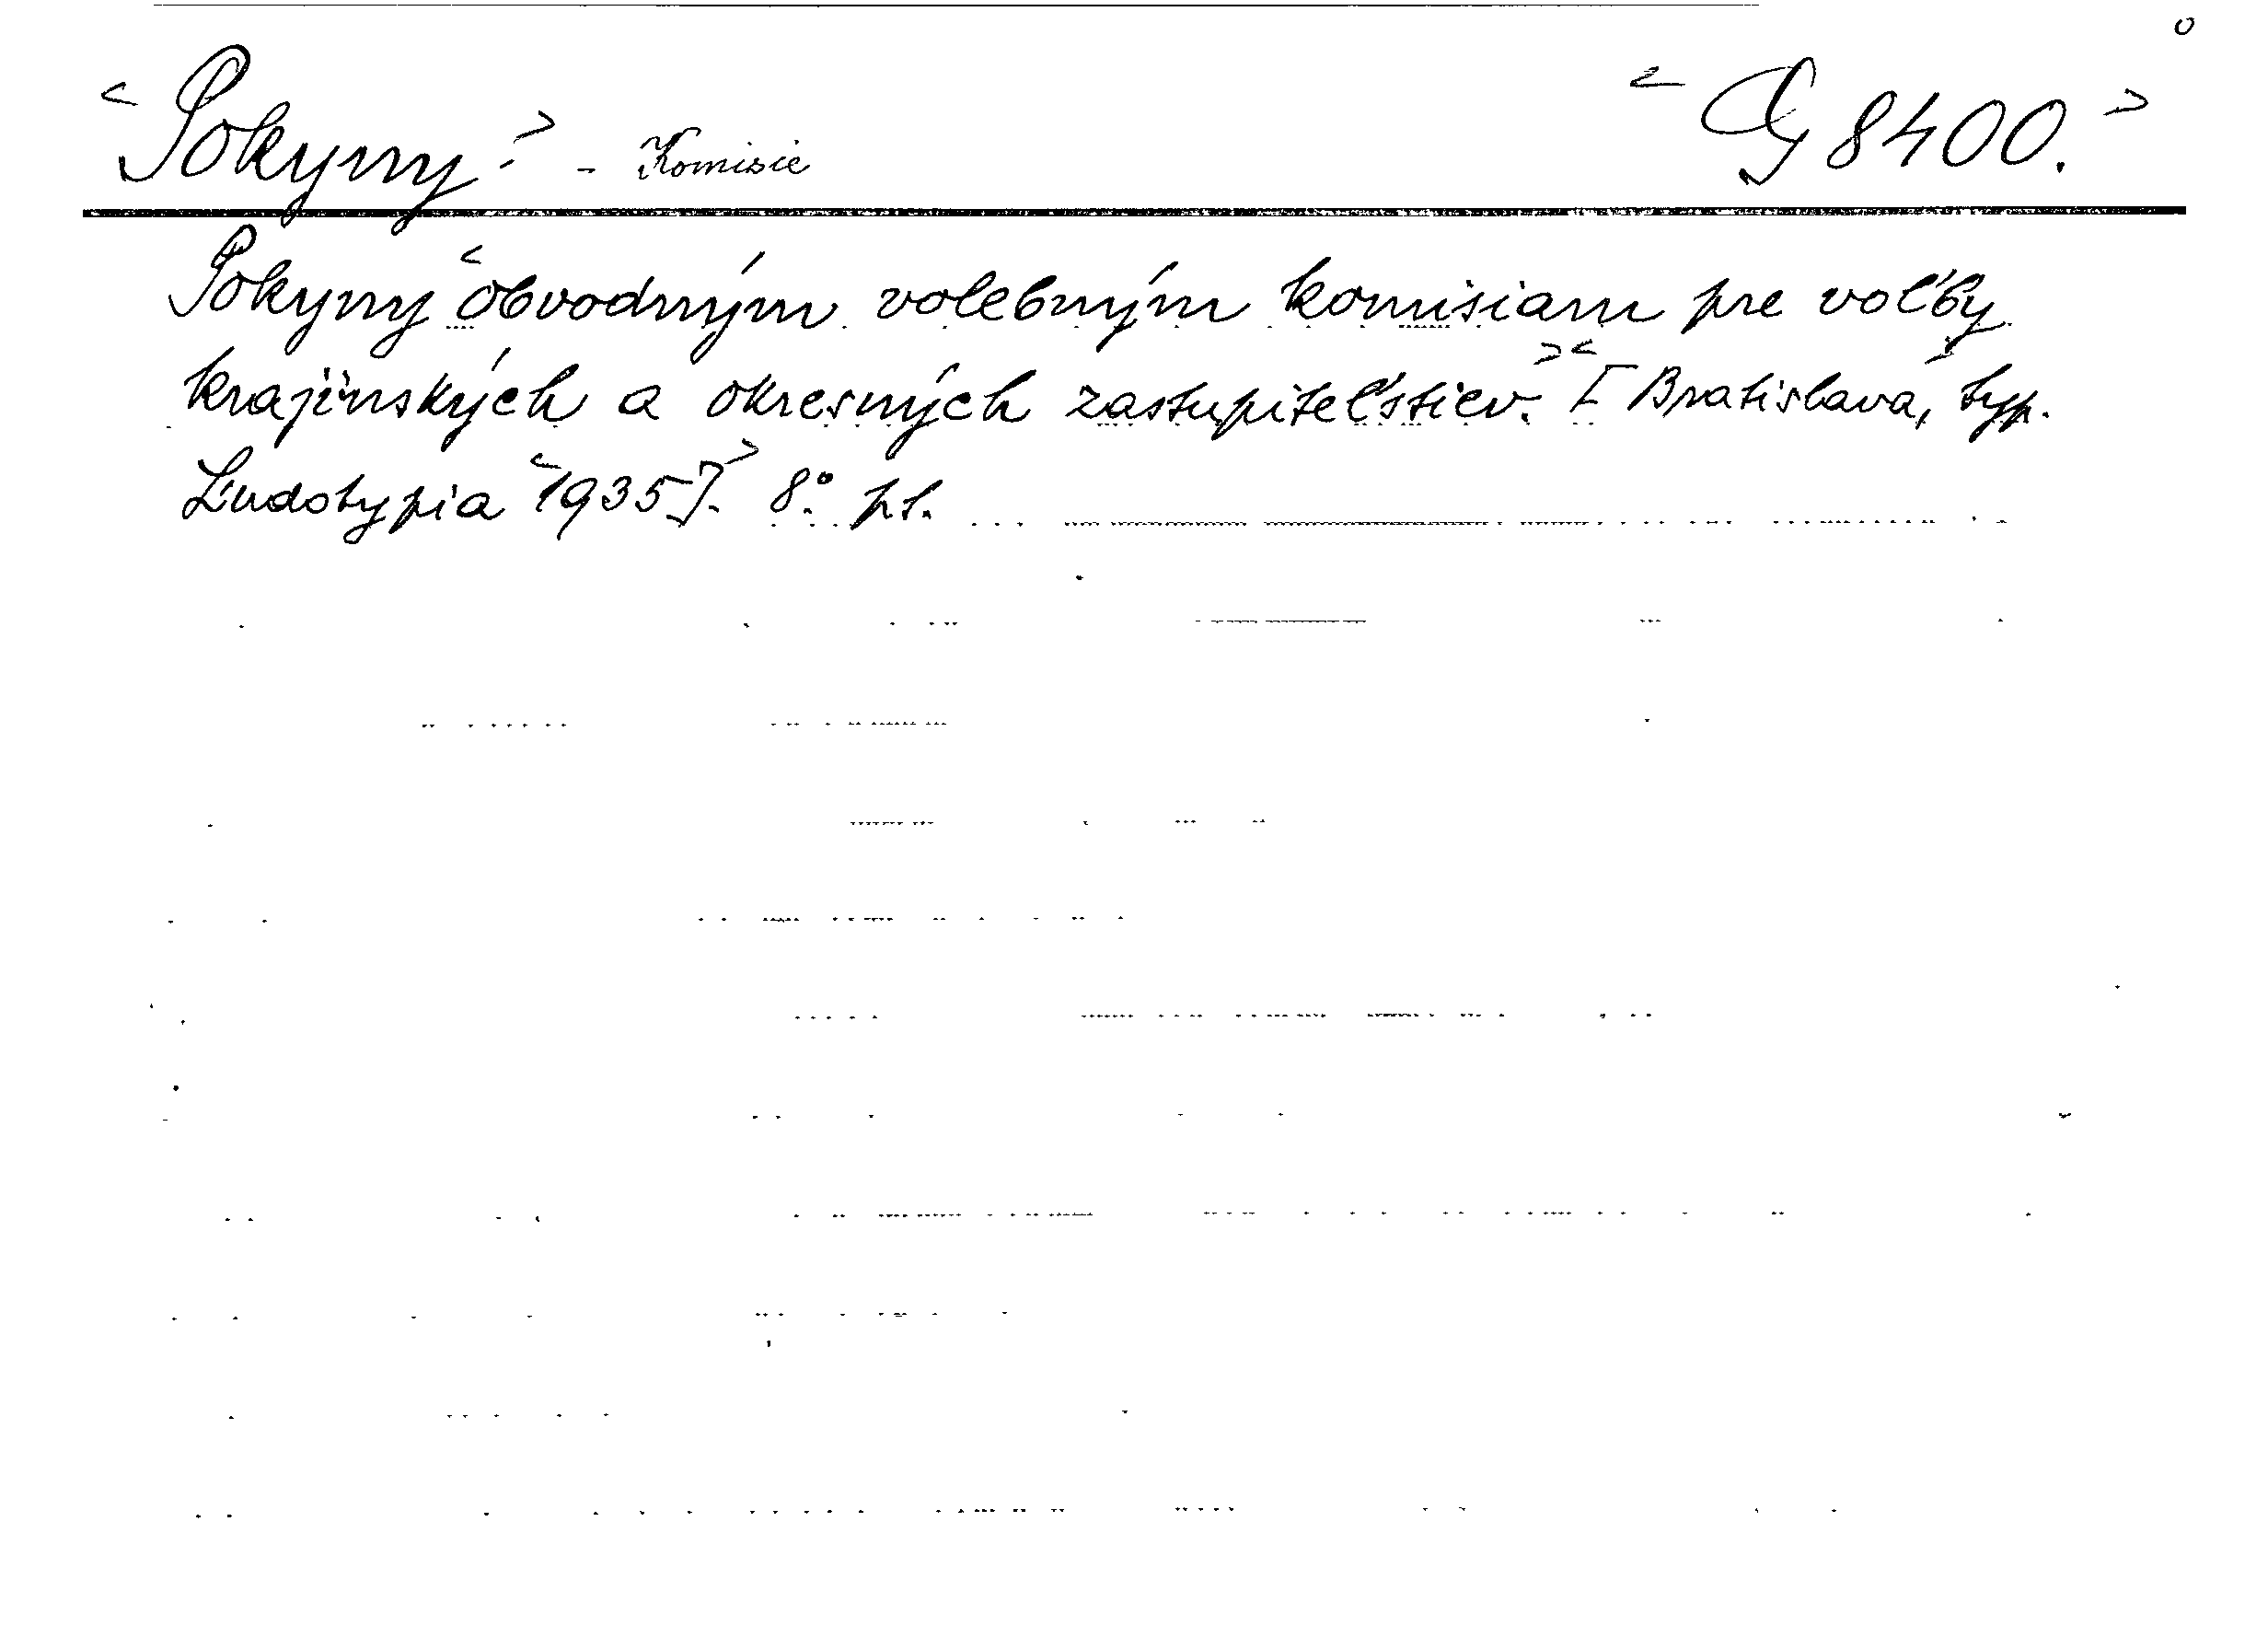 Pokyny. - Komisie G 8400.
Pokyny obvodným volebným komisiam pre voľby
krajinských a okresných zastupiteľstiev. [Bratislava, typ.
Ľudotypia 1935]. 8°. pl.